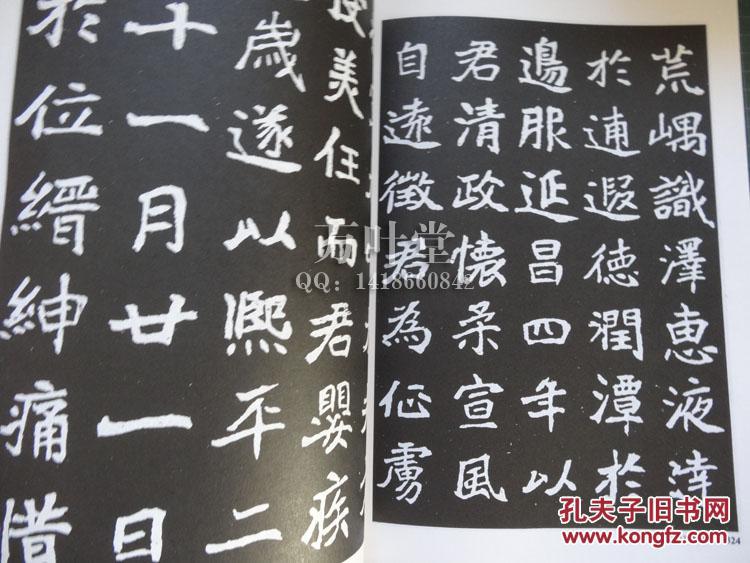 荒嵎識澤惠液
於逋遐德潤潭於
邊服延昌四年以
君清政懷柔宣風
自遠徵君為征虜
美任而君嬰疾
歲遂以熙平二
十一月廿一日
於位縉紳痛惜
万叶堂
QQ：1418660842
324
孔夫子旧书网
www.kongfz.com